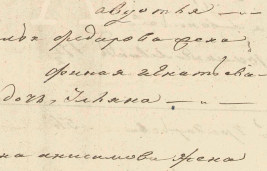 авдотья
федорова жена
финая игнатьева
дочь, Ульяна
на анисимова жена